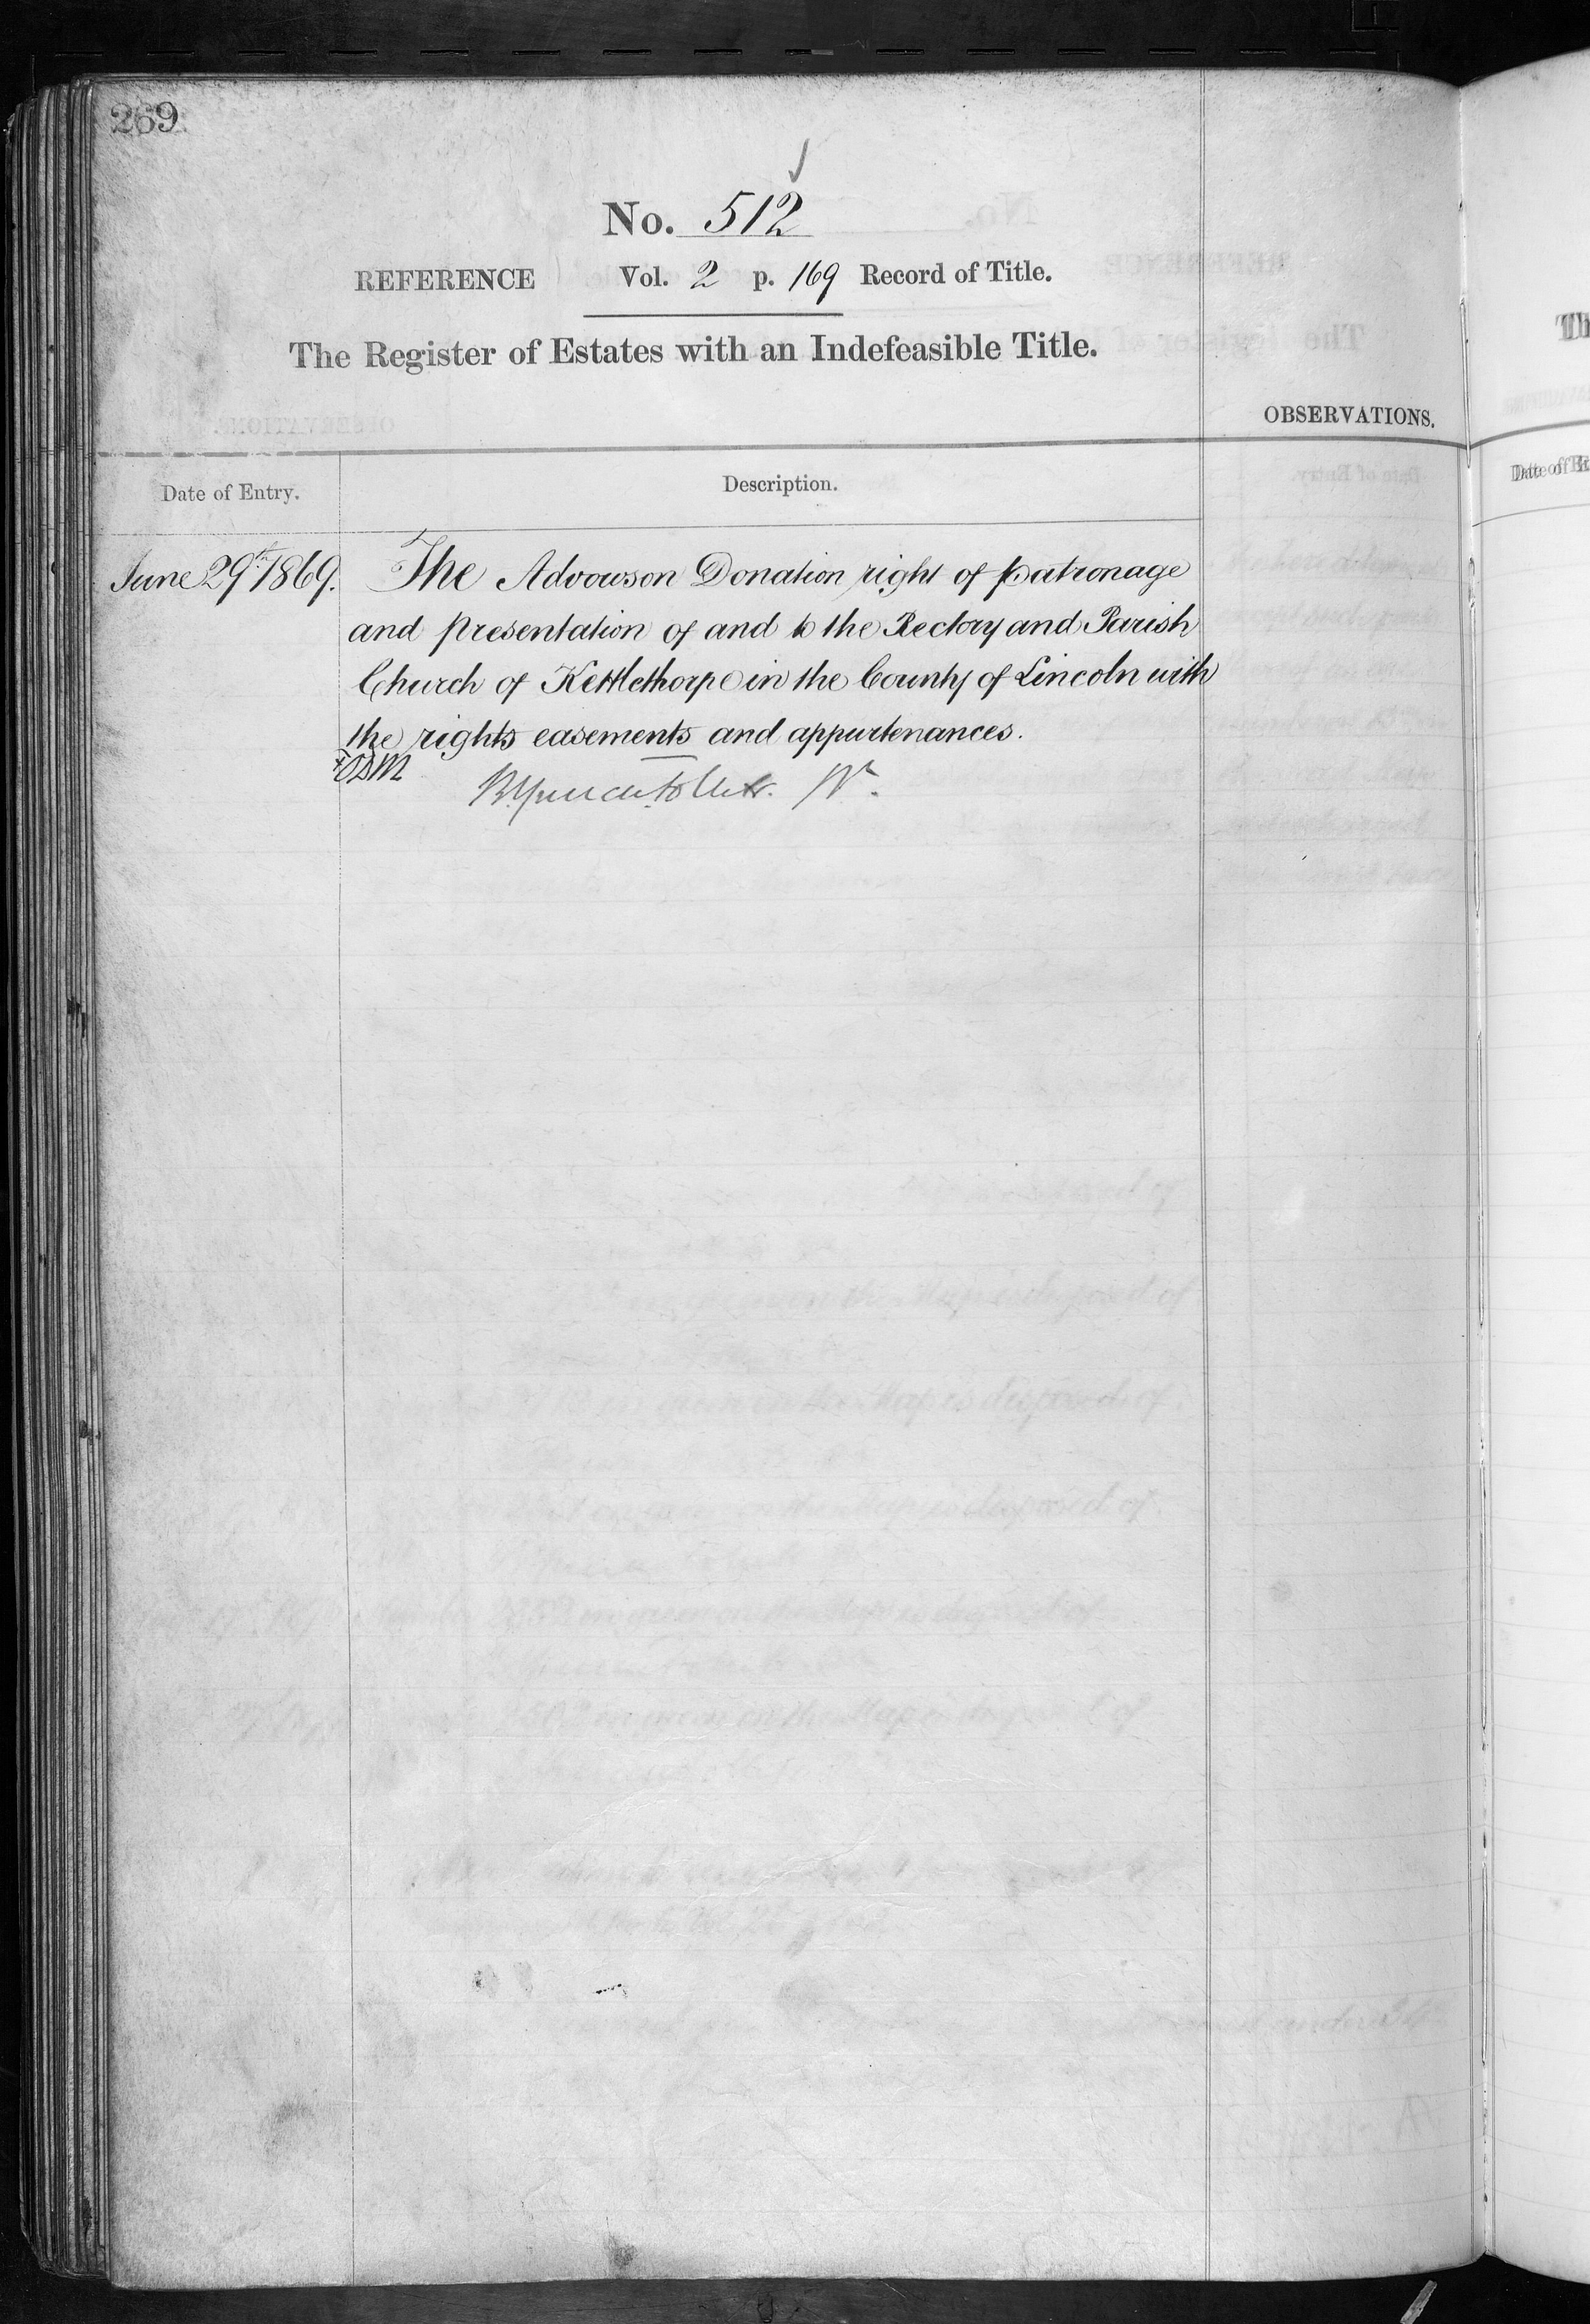 269
No. 512
REFERENCE Vol. 2 p. 169 Record of Title.
The Register of Estates with an Indefeasible Title.
OBSERVATIONS.
Date of Entry.
Description.
June 29th 1869.
The Advowson Donation right of patronage
and presentation of and to the Rectory and Parish
Church of Kettlethorpe in the County of Lincoln with
the rights easements and appurtenances.